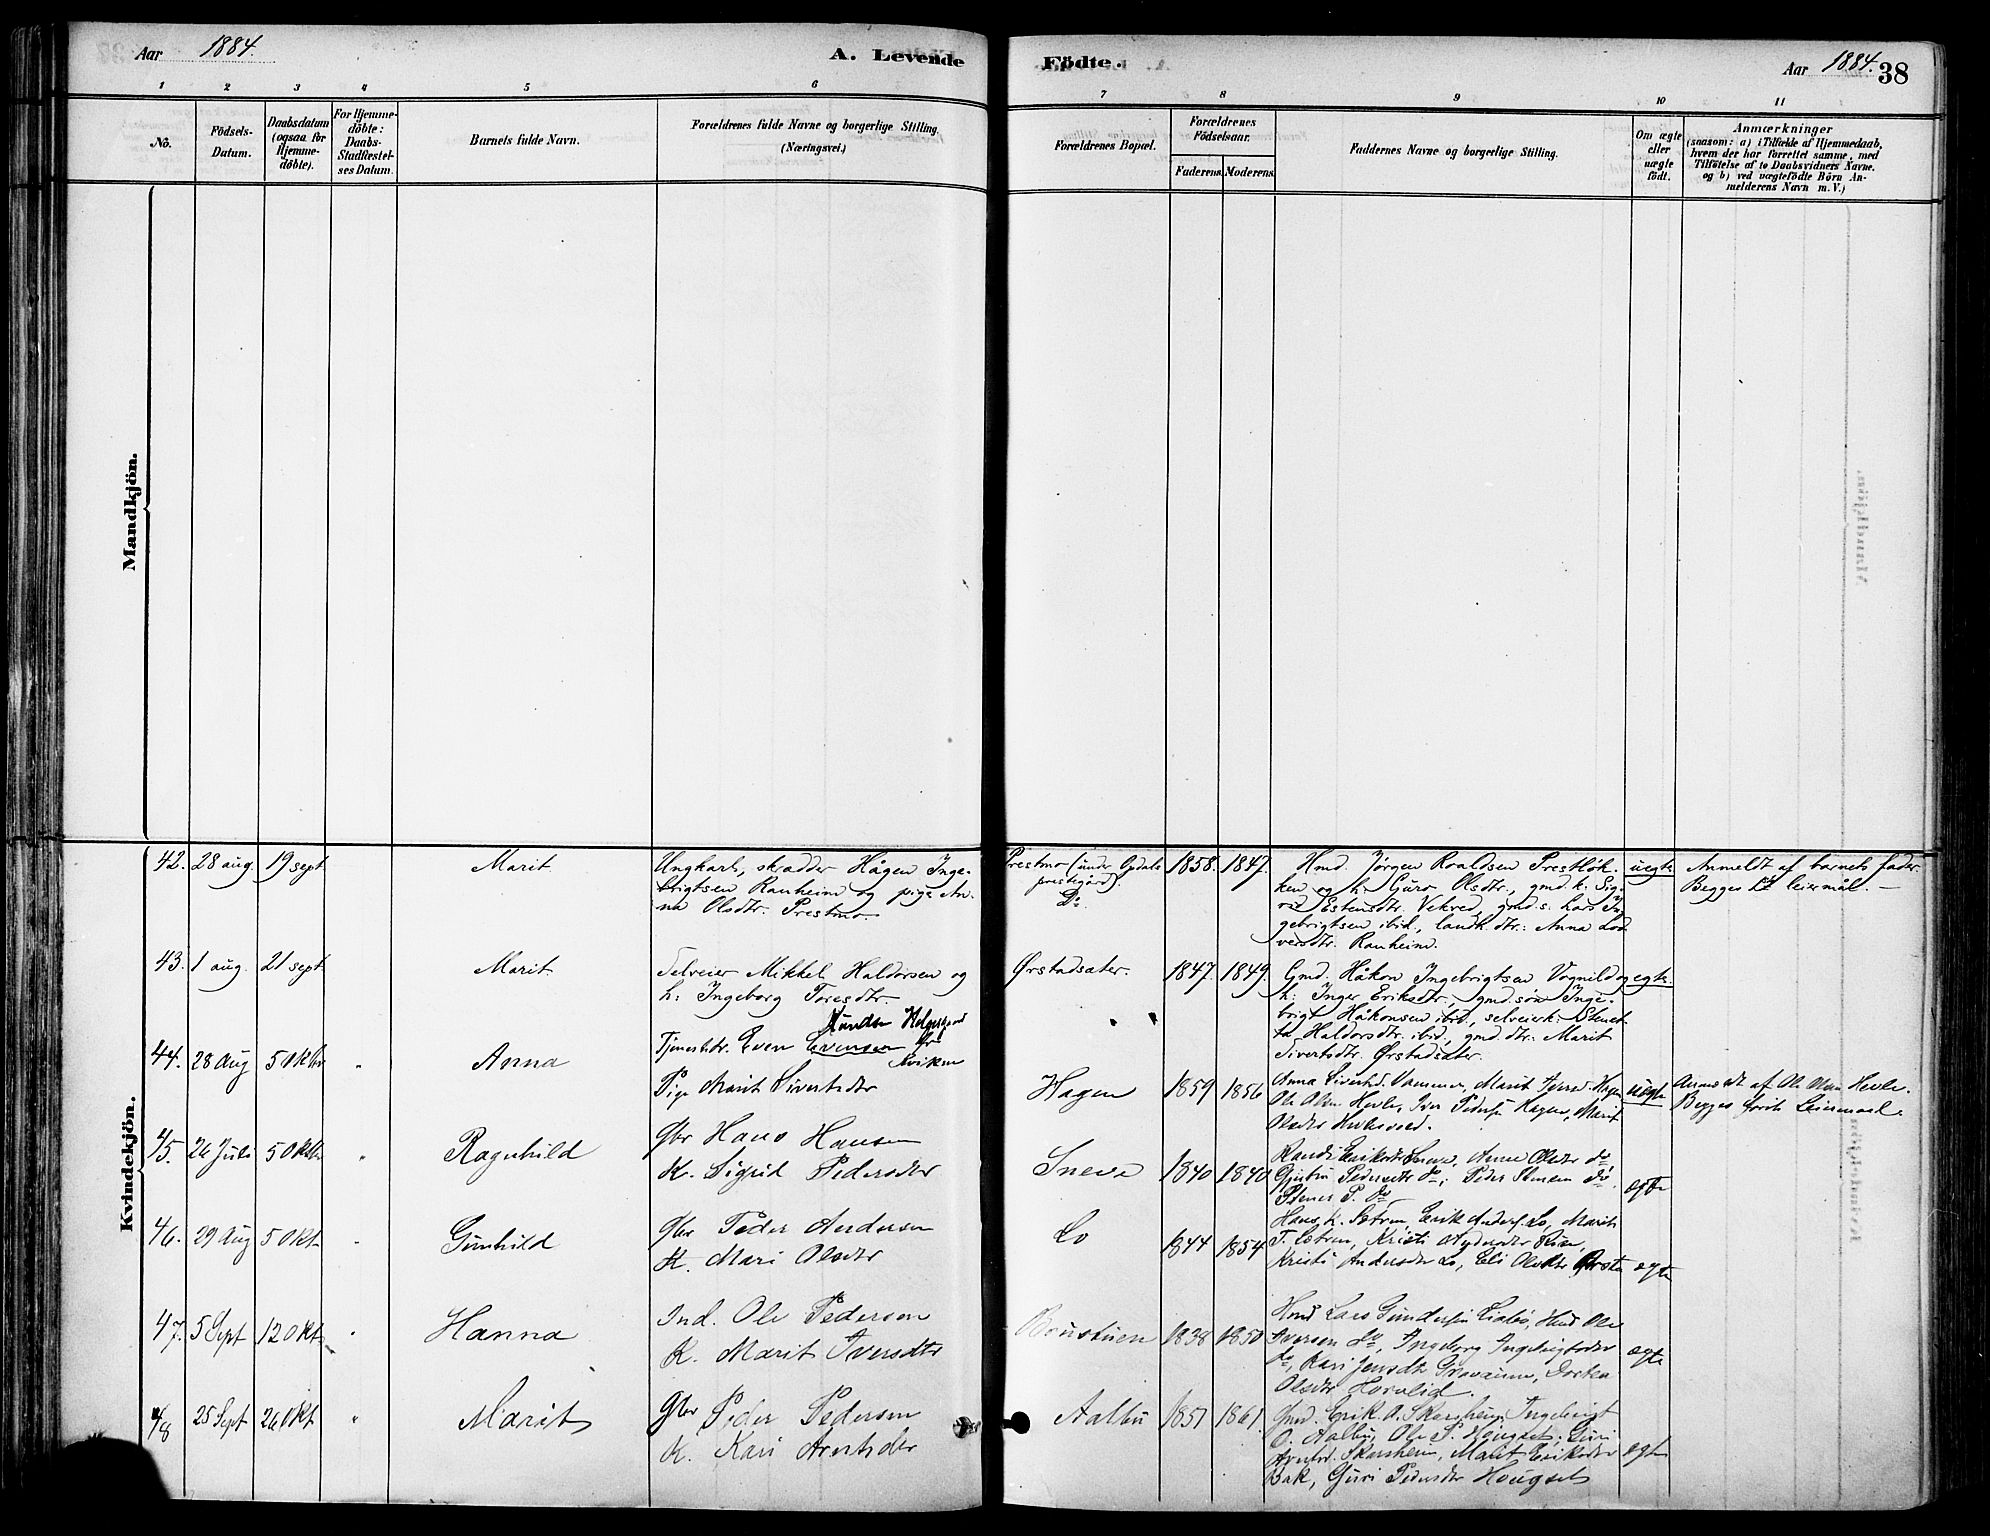 Aar 1884.
A. Levende
Födte.
Aar 1884. 38
1 2 3 4 5 6
7 8 9 10 11
No.
Födsels-
Datum.
Daabsdatum
(ogsaa for
Hjemme-
döbte).
For Hjemme-
döbte:
Daabs-
Stadfæstel-
ses Datum.
Barnets fulde Navn.
Forældrenes fulde Navne og borgerlige Stilling.
(Næringsvei.)
Forældrenes Bopæl.
Forældrenes
Födselsaar.
Faderens. Moderens.
Faddernes Navne og borgerlige Stilling.
Om ægte
eller
uægte
födt.
Anmærkninger
(saasom: a) i Tilfælde af Hjemmedaab,
hvem der har forrettet samme, med
Tilföielse af to Daabsvidners Navne.
og b) ved uægtefödte Börn An-
melderens Navn m. V.)
Mandkjön.
Kvindekjön.
42. 28 aug. 19 sept. Marit
Ungkarl, skrædder Hågen Inge-
brigtsen Ranheim og pige An-
na Olsdtr. Prestmo
Prestmo (under Opdals
prestegård).
Do.
1858. 1847.
Hmd. Jörgen Roaldsen Prestløk-
ken og h: Guro Olsdtr., gmd. k: Sig-
rid Estensdtr. Vekved, gmd.s: Lars In-
gebrigtsen ibid., landh. dtr: Anna
Ranheim.
uegte
Anmeldt af barnets fader.
Begges leiermål. —
43. 1 aug. 21 sept. Marit
Selveier Mikkel Haldorsen og
h: Ingeborg Toresdtr.
Ørstadsæter. 1847. 1849.
Gmd. Håkon Ingebrigtsen Vognild og
h: Inger Eriksdtr., gmd. sön Inge-
brigt Håkonsen ibid., selveierk:
Haldorsdtr. ibid., gmd. dtr: Marit
Sivertsdtr. Ørstadsæter.
egte.
44. 28 Aug 5 Oktbr " Anna
Tjenestdr. Even Evensen
Pige Marit Sivertsdtr
Hagen 1859 1856
Anna Sivertsd. Vammer, Marit Hagen
Ole Olsen Hevle, Iver Peders. Hagen, Marit
Olsdtr
uegte
Anmeldt af Ole Olsen Hevle.
Begges förste Leiermaal.
45. 26 Juli 5 Oktbr " Ragnhild
Gbr Hans Hansen
K. Sigrid Pedersdtr
Sneve 1840 1840
Randi Eriksdtr Sneve, Anne Olsdtr do
Pedersdtr do, Peder Stensen do,
P. do
egte
46. 29 Aug 5 Okt. " Gunhild
Gbr Peder Andersen
K. Mari Olsdtr
Lo 1844 1854
Hans H. Sætren, Erik Anders. Lo, Marit
T. Sætren, Kristi Rise,
Kristi Andersdtr Lo, Eli Olsdtr
egte
47. 5 Sept 12 Okt. " Hanna
Ind. Ole Pedersen
K. Marit Iversdtr
Boustuen 1838 1850
Hmd Lars Gundersen Liabö, Hmd Ole
Iversen do, Ingeborg Ingebrigtsdtr
do, Kari Jensdtr Dortea
Olsdtr Horvlid.
egte
48 25 Sept 26 Okt " Marit
Gbr Peder Pedersen
K. Kari Arntsdtr
Aalbu 1851 1861.
Gmd. Erik A. Skarsheim, Ingebrigt
O. Aalbu, Ole P. Hougset, Guri
Arntsd. Skarsheim, Marit Eriksdtr
Bak, Guri Pedersdtr Hougset
egte